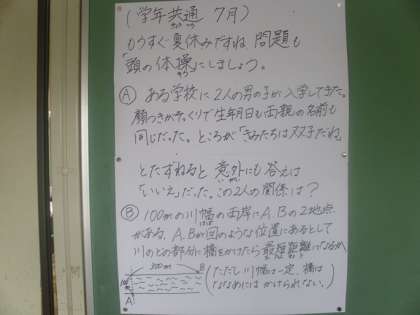 (学年共通 7月)
もうすぐ夏休みですね 問題も
「頭の体操」にしましょう。
Ⓐ ある学校に2人の男の子が入学してきた。
顔つきがそっくりで生年月日も両親の名前も
同じだった。ところが「きみたちは双子だね」
とたずねると 意外にも答えは
「いいえ」だった。この2人の関係は?
Ⓑ 100mの川幅の両岸にA.Bの2地点
がある。A.Bが図のような位置にあるとして
川のどの部分に橋をかけたら最短距離になるか。
(ただし川幅は一定、橋は
ななめにはかけられない。)
100m
B
A